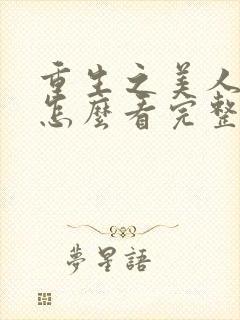 重生之美人
怎麼看完整
夢星語